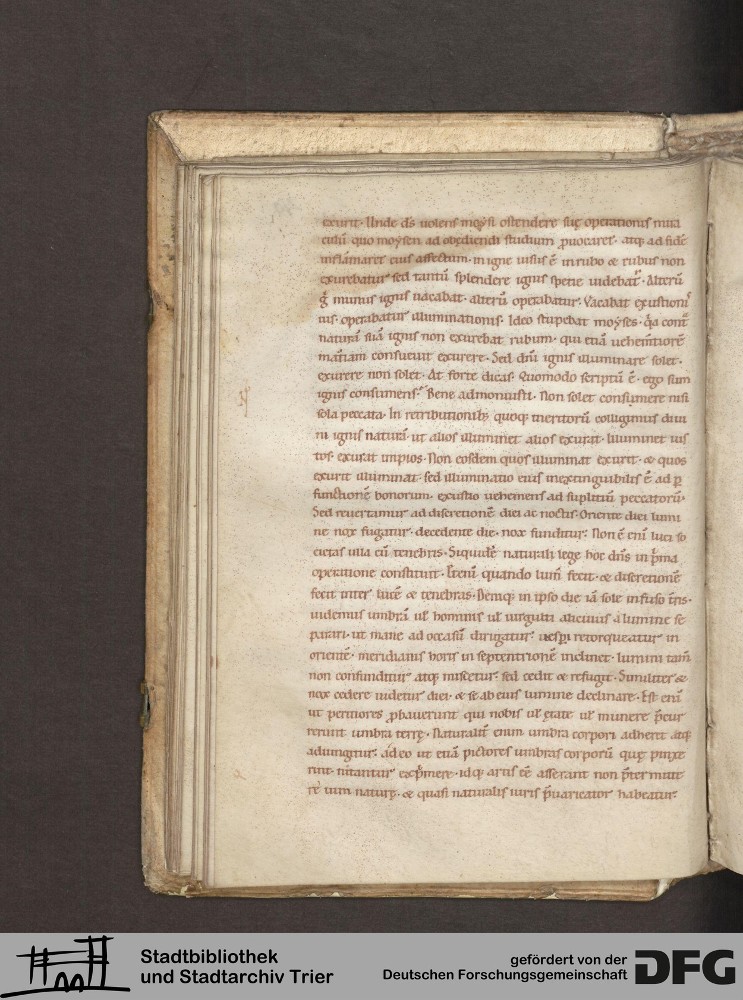 exurit· Unde ds̄ uolens moẏsi ostendere suę operationis mira
culū quo moẏsen ad obędiendi studium ꝓuocaret· atq; ad fidē
inflāmaret eius affectum· in igne uisus ē in rubo & rubus non
exurebatur sed tantū splendere ignis specie uidebat᷑· Alterū
g̊ munus ignis uacabat· alterū operabatur· Vacabat exustioni
uis· operabatur illuminationis· Ideo stupebat moẏses· q̇a cont̄
naturā suā ignis non exurebat rubum· qui etiā uehem̄tiorē
mat̄iam consueuit exurere· Sed dn̄i ignis illuminare solet·
exurere non solet· At forte dicas· Quomodo scriptū ē· ego sum
ignis consumens· Bene admonuisti· Non solet consumere nisi
sola peccata· In retributionib; quoq; meritorū colligimus diui
ni ignis naturā· ut alios illuminet alios exurat· Illuminet ius
tos· exurat impios· Non eosdem quos illuminat exurit· & quos
exurit illuminat· sed illuminatio eius inextinguibilis ē ad ꝑ
functionē bonorum· exustio uehemens ad supliciū peccatorū·
Sed reuertamur ad discretionē diei ac noctis· Oriente diei lumi
ne nox fugatur· decedente die· nox funditur· Non ē eni luci so
cietas ulla cū tenebris· Siquidē naturali lege hoc dn̄s in p̄ma
operatione constituit· Etenī quando lum̄ fecit· & discretionē
fecit inter lucē & tenebras· Deniq; in ipso die iā sole infuso t̄ris·
uidemus umbrā ul̄ hominis ul̄ uirgulti alicuius a lumine se
parari· ut mane ad occasū dirigatur· uesp̄i retorqueatur in
orientē· meridianis horis in septentrionē inclinet· lumini tam̄
non confunditur atq; miscetur· sed cedit & refugit· Similiter &
nox cedere uidetur diei· & se ab eius lumine declinare· Est enī
ut peritiores ꝓbauerunt qui nobis ul̄ ętate ul̄ munere p̄cur
rerunt umbra terrę· Naturalit̄ enim umbra corpori adheret atq;
adiungitur· adeo ut etiā pictores umbras corporū quę pinxe
rint· nitantur exp̄mere· idq; artis eē asserant non p̄termitte
re uim naturę· & quasi naturalis iuris p̄uaricator habeatur·
Stadtbibliothek
und Stadtarchiv Trier
gefördert von der
Deutschen Forschungsgemeinschaft
DFG